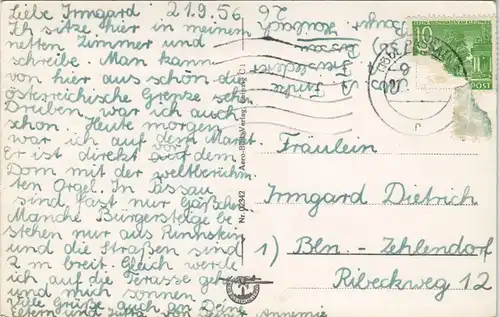 Liebe Irmgard 21.9.56
Ich sitze hier in meinem
netten Zimmer und
schreibe. Man kann
von hier aus schön die
österreichische Grenze sehen
Drüben, war ich auch
schon Heute morgen
war ich auf dem Markt.
Er ist direkt vor dem
Dom mit der weltberühm
ten Orgel. In Passau
sind fast nur Gäßchen
Manche Bürgersteige be
stehen nur aus Rinnstein
und die Straßen sind
2 m breit. Gleich werde
ich auf die Terasse gehen
und mich sonnen.
Viele Grüße auch an Deine
Eltern und Annemie
Passau
Nr. 02342
Aero-Bild-Verlag, Leipzig C 1
10
POST
Fräulein
Irmgard Dietrich
1) Bln.- Zehlendorf
Ribeckweg 12